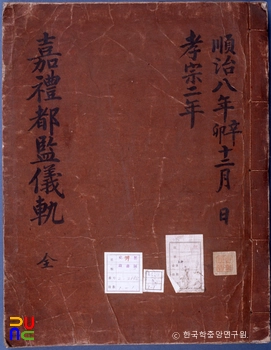 順治八年辛卯十二月 日
孝宗二年
嘉禮都監儀軌 全
ⓒ 한국학중앙연구원